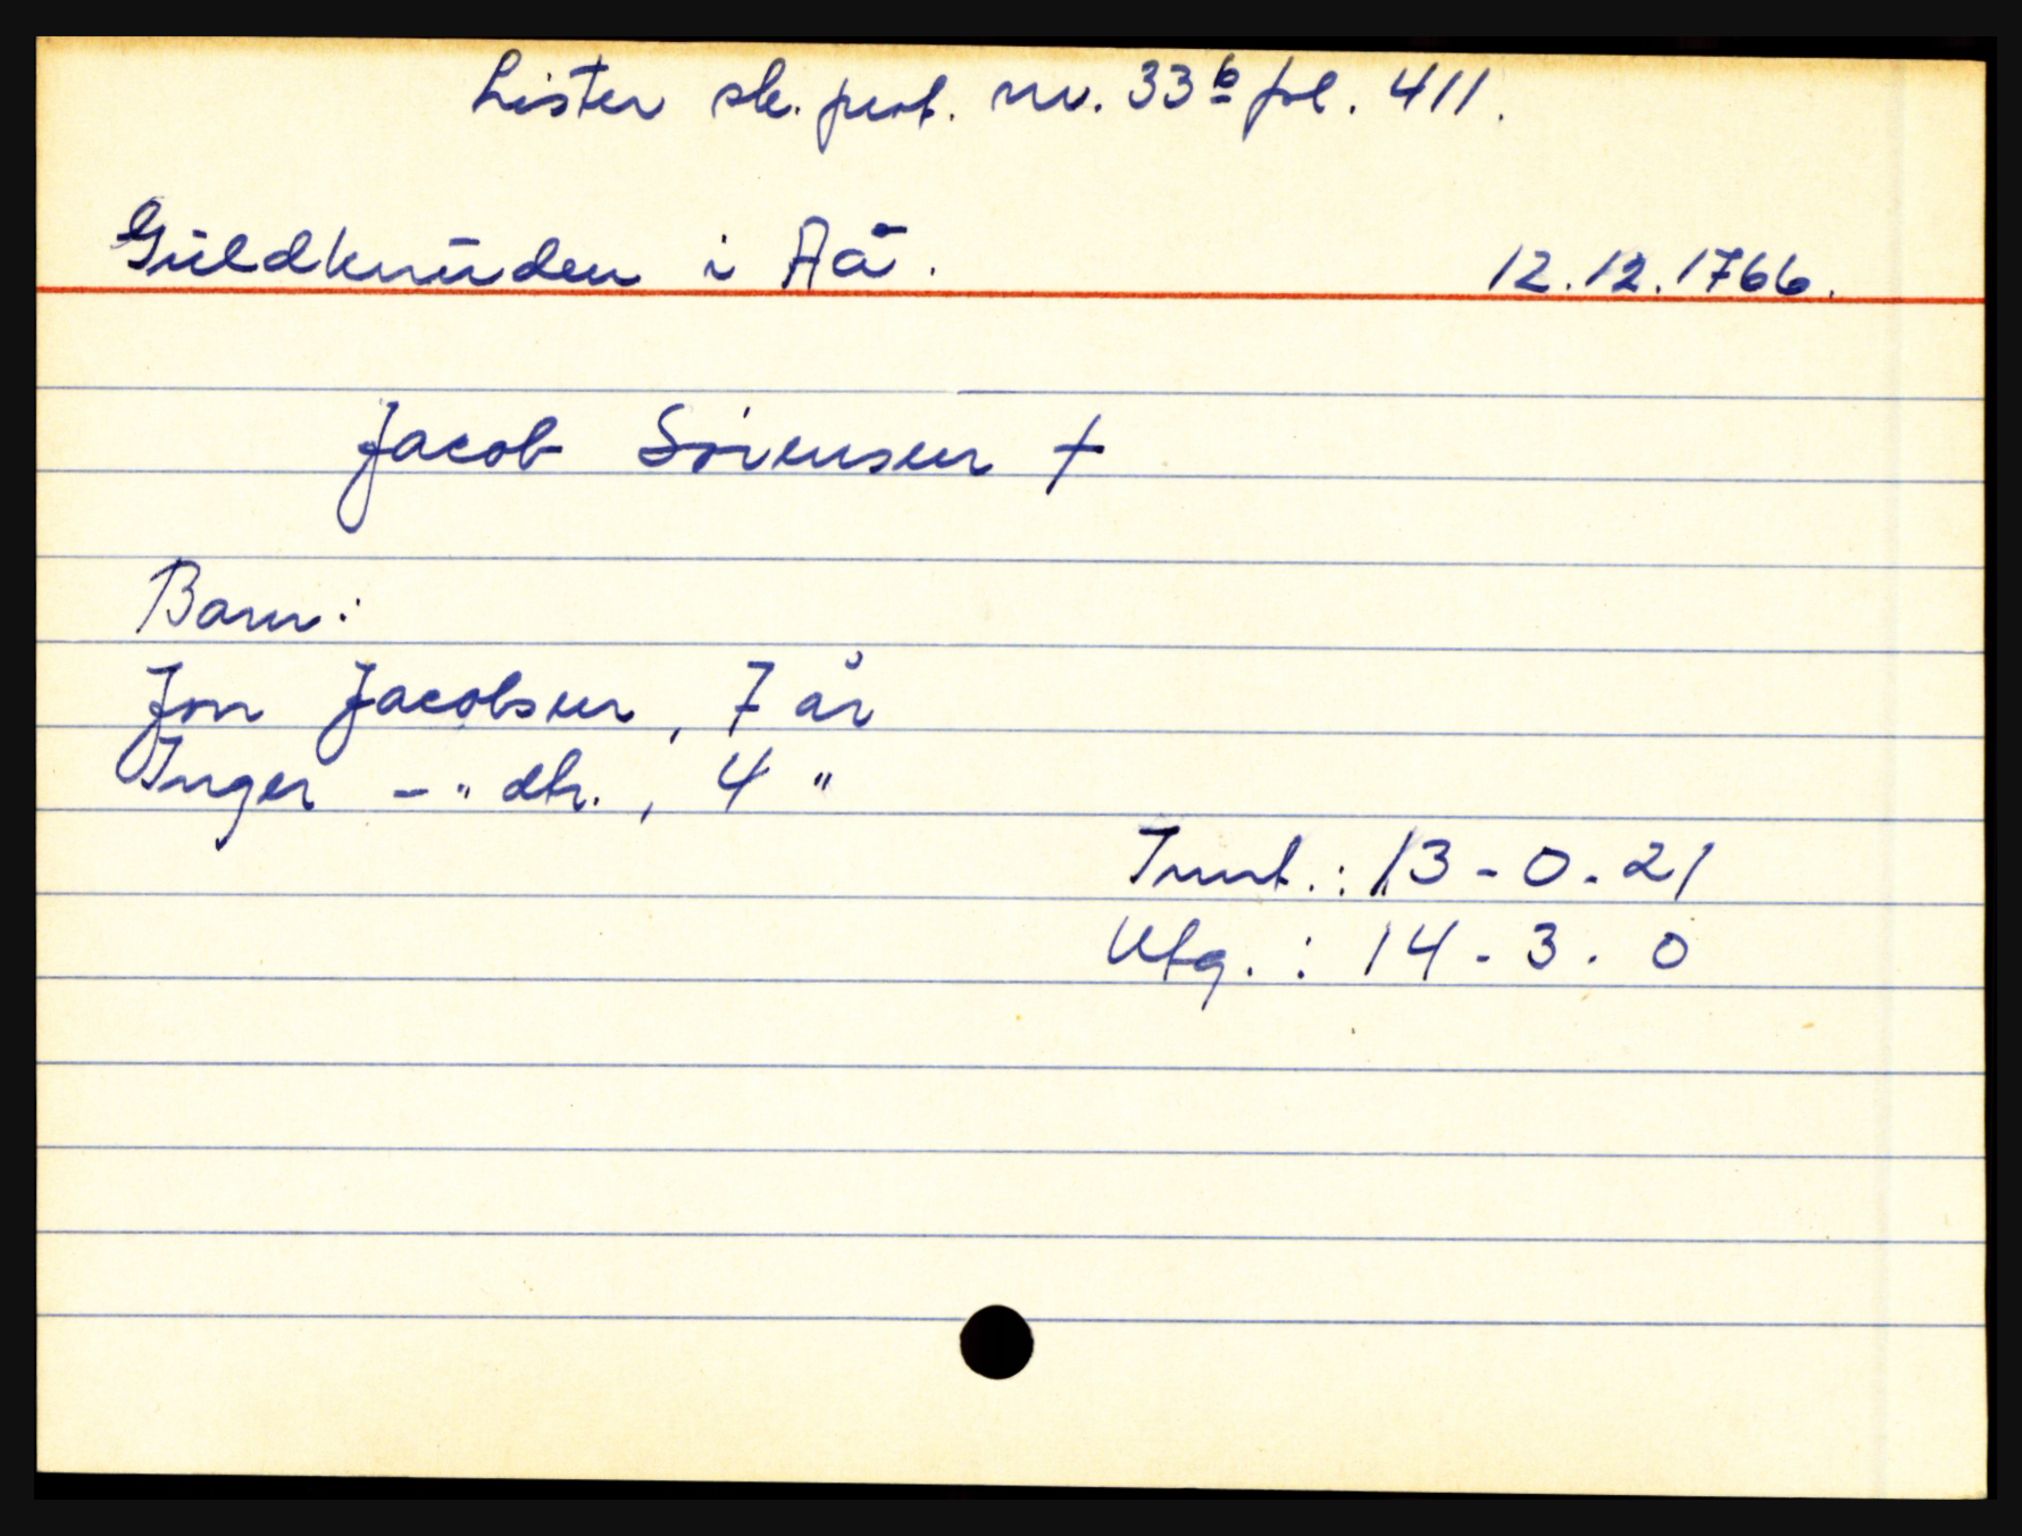 Lister sk. prot. nr. 33b fol. 411.
Guldknuden i Aå. 12.12.1766.
Jacob Sörensen +
Barn:
Jon Jacobsen, 7 år
Inger -" dtr., 4 "
Innt.: 13-0-21
Utg.: 14-3-0